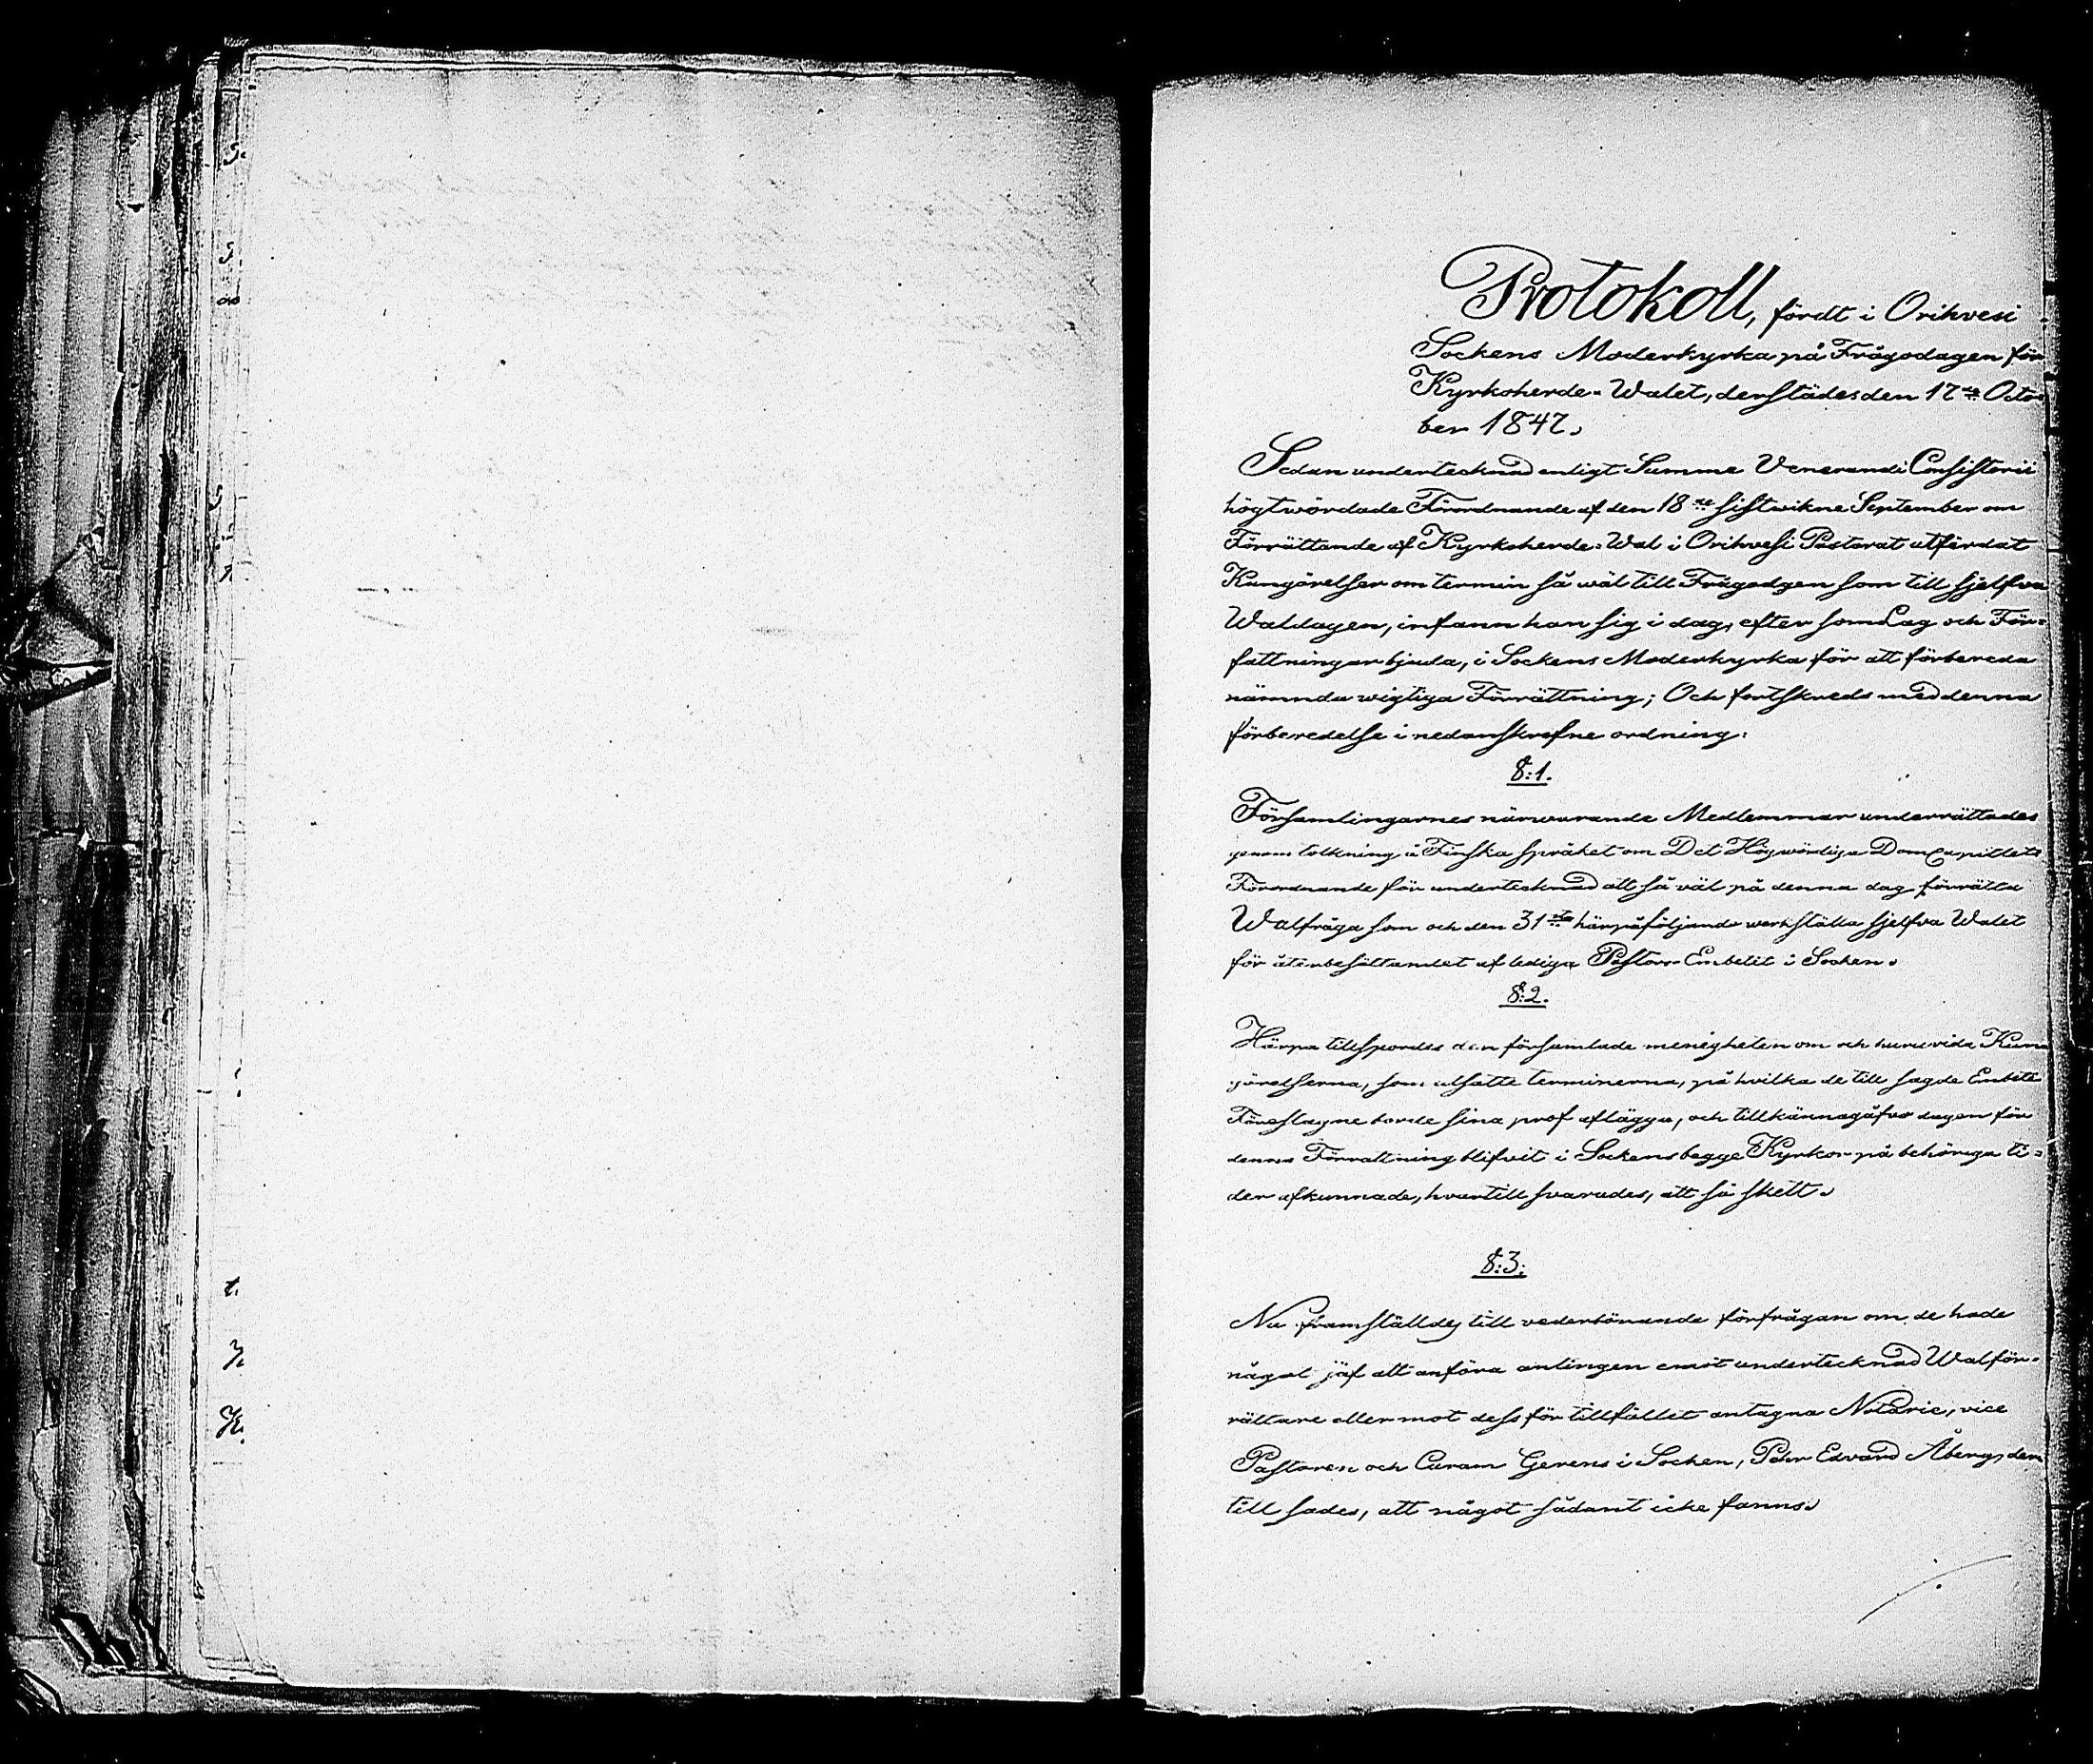 Protokoll, fördt i Orihvesi
Sockens Moderkyrka på Frågodagen för
Kyrkoherde-Walet, derstädes den 17de Octo=
ber 1847.
Sedan undertecknad enligt Summe Venerandi Consistorii
högtwördade Förordnande af den 18de sistwikne September om
Förrättande af Kyrkoherde-Wal i Orihvesi Pastorat utfärdat
Kungörelser om termin så wäl till Frågodgen som till sjelfva
Waldagen, infann han sig i dag, efter som Lag och För=
fattningar bjuda, i Sockens Moderkyrka för att förbereda
nämnda wigtiga Förrättning; Och fortskreds med denna
förberedelse i nedanskrefne ordning:
§:1.
Församlingarnes närwarande Medlemmar underrättades
genom tolkning å Finska språket om Det Högwördiga DomCapitlets
Förordnande för undertecknad att så väl på denna dag förrätta
Walfråga som och den 31sta härpåföljande werkställa sjelfva Walet
för återbesättandet af lediga Pastors-Embetet i Socken.
§:2.
Härpa tillspordes den församlade menigheten om och huruvida Kun
görelserna, som utsatte terminerna, på hvilka de till sagde Embete
Föreslagne borde sina prof aflägga, och tillkännagåfvo dagen för
denna Förrattning blifvit i Sockens begge Kyrkor på behöriga ti=
der afkunnade, hvartill svarades, att så skett.
§:3:
Nu framställdes till vederbörande förfrågan om de hade
något jäf att anföra antingen emot undertecknad Walför=
rättare eller mot dess för tillfället antagna Notarie, vice
Pastoren och Curam Gerens i Socken, Pehr Edvard Åberg, der
till sades, att något sådant icke fanns.